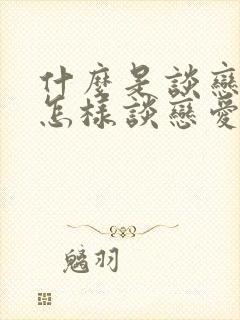 什麼是談戀
怎樣談戀愛
魑羽